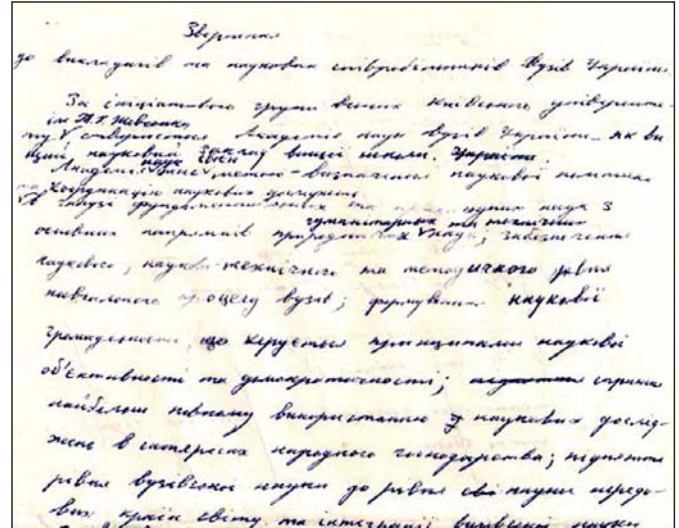 Звернення
до викладачів та наукових співробітників Вузів України.
За ініціативою групи вчених Київського університе-
ім Т.Г. Шевченка
ту створюється Академія наук вузів України – як ви
щий науковий заклад вищої школи України.
наук своєю
Академія має метою – визначення наукової політики
та координацію наукових досліджень
в галузі фундаментальних та прикладних наук з
гуманітарних та технічних
основних напрямків природничих наук; забезпечення
наукового, науково-технічного та методичного рівня
навчального процесу вузів; формування наукової
громадськості, що керується принципами наукової
об'єктивності та демократичности; сприяти
найбільш повному використанню наукових дослід-
жень в інтересах народного господарства; підняття
рівня вузівської науки до рівня науки передо-
вих країн світу та інтеграції вузівської науки